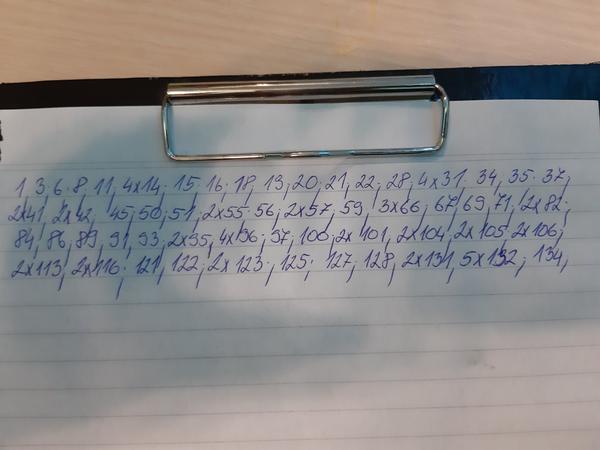 1, 3, 6, 8, 11, 4x14, 15, 16, 18, 19, 20, 21, 22, 28, 4x31, 34, 35, 37,
2x41, 2x42, 45, 50, 51, 2x55, 56, 2x57, 59, 3x66, 67, 69, 71, 2x82,
84, 86, 89, 91, 93, 2x95, 4x96, 97, 100, 2x101, 2x104, 2x105, 2x106,
2x113, 2x116, 121, 122, 2x123, 125, 127, 128, 2x131, 5x132, 134,